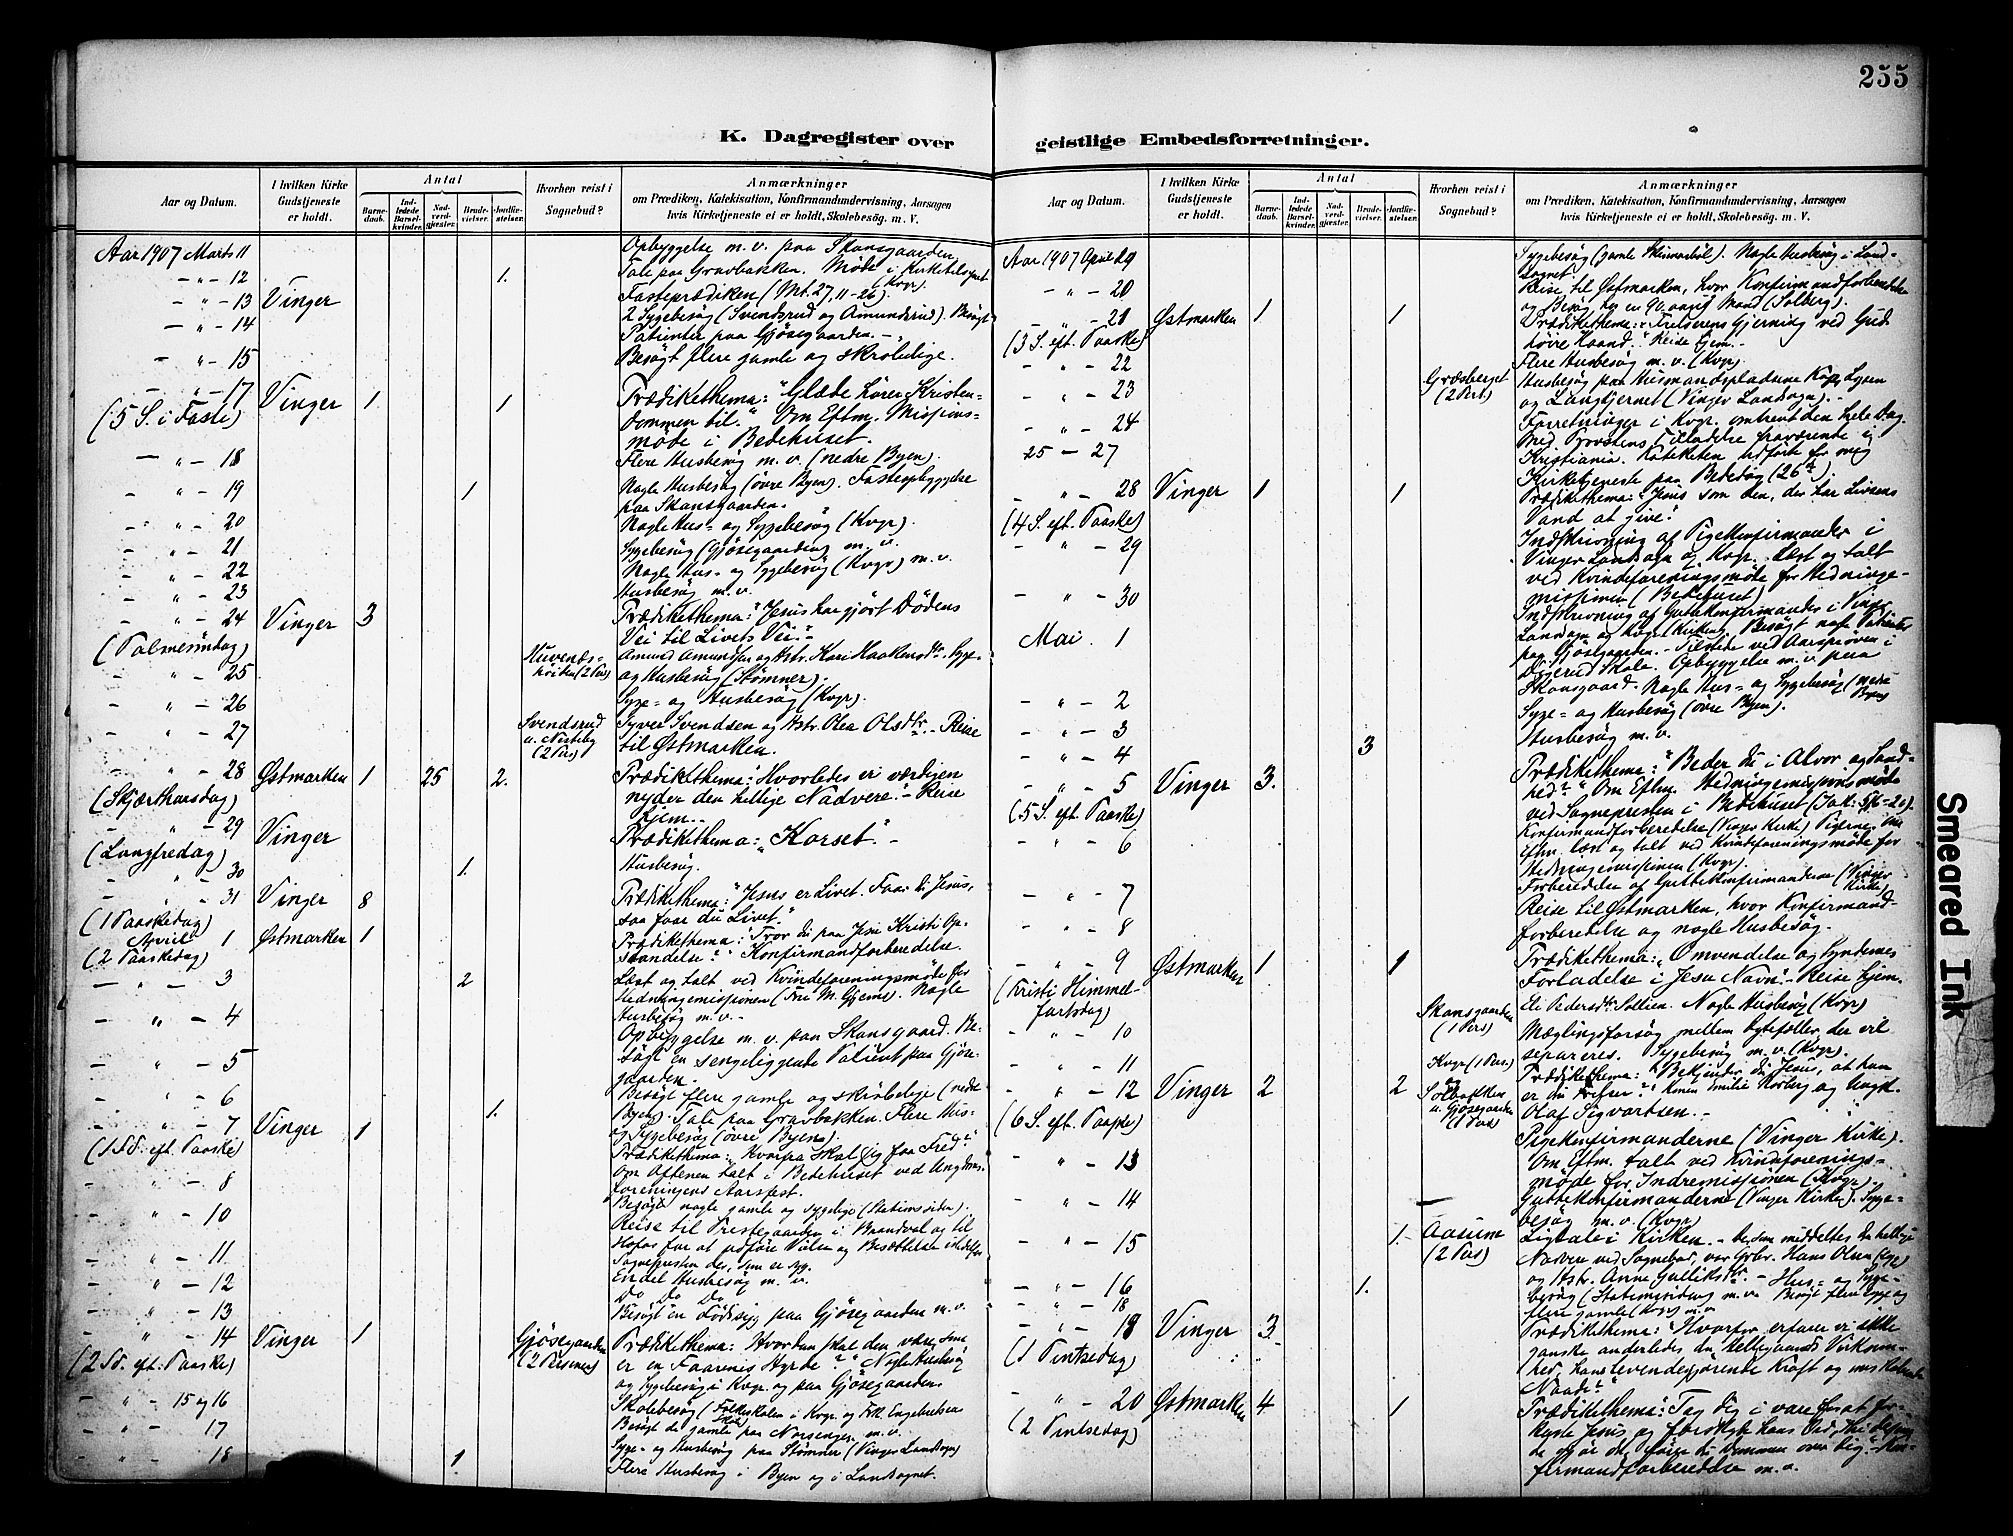 255
K. Dagregister over geistlige Embedsforretninger.
Aar og Datum.
I hvilken Kirke Gudstjeneste er holdt.
Antal
Barnedaab.
Indledede Barselkvinder.
Nadverdgjæster.
Brudevielser.
Jordfæstelser.
Hvorhen reist i Sognebud?
Anmærkninger
om Prædiken, Katekisation, Konfirmandundervisning, Aarsagen
hvis Kirketjeneste ei er holdt, Skolebesøg. m. V.
Aar 1907 Marts 11 Opbyggelse m. v. paa Skansgaarden
" 12 1. Tale paa Gravbakken. Møde i
" 13 Vinger Fasteprædiken (Mt. 27, 11-26).
" 14 2 Sygebesøg (Svendsrud og Amundsrud). Besøgt
Patienter paa Gjøsegaarden.
" 15 Besøgt flere gamle og skrøbelige.
" 17 Vinger 1 1 Prædikethema: "Glæde hører Kristen-
(5 S. i Faste) dommen til." Om Eftm. Missions-
møde i Bedehuset.
" 18 Flere Husbesøg m. v. (nedre Byen).
" 19 1 Nogle Husbesøg (øvre Byen). Fasteopbyggelse
paa Skansgaarden.
" 20 Nogle Hus- og Sygebesøg (Kvgr).
" 21 Sygebesøg (Gjøsegaarden) m. v.
" 22 Nogle Hus- og Sygebesøg (Kvgr) m. v.
" 23 Husbesøg m. v.
" 24 Vinger 3 Prædikethema: "Jesus har gjort Dødens
(Palmesøndag) Vei til Livets Vei."
" 25 (2 Pers) Amund Amundsen og Hstr. Kari Haakensdtr. Syge-
og Husbesøg (Stømner).
" 26 Syge- og Husbesøg (Kvgr).
" 27 Svendsrud (2 Pers) Syver Svendsen og Hstr. Olea Olsdtr. - Reise
til Østmarken.
" 28 Østmarken 1 25 2. Prædikethema: "Hvorledes er værdigen
(Skjærthorsdag) nyder den hellige Nadvere." - Reise
hjem.
" 29 Vinger Prædikethema: "Korset."
(Langfredag)
" 30 1. Husbesøg.
" 31 Vinger 8 Prædikethema: "Jesus er Livet. Faar du Jesus,
(1 Paaskedag) saa faar du Livet."
April 1 Østmarken 1 Prædikethema: "Tror du paa Jesu Kristi Op-
(2 Paaskedag) standelse?" Konfirmandforberedelse.
" 3 2 Læst og talt ved Kvindeforeningsmøde for
Hedningemissionen (Fru M. Gjems). Nogle
Husbesøg m. v.
" 4 Opbyggelse m. v. paa Skansgaard. Be-
" 5 søgt en sengeliggende Patient paa Gjøse-
gaarden.
" 6 1. Besøgt flere gamle og skrøbelige (nedre
Byen). Tale paa Gravbakken. Flere Hus-
" 7 Vinger 1 og Sygebesøg (øvre Byen).
(1 S. eft. Paaske) Prædikethema: "Hvorpaa skal jeg faa Fred?"
Om Aftenen talt i Bedehuset ved Ungdoms-
" 8 foreningens Aarsfest.
Besøgt nogle gamle og sygelige (Stationssiden).
" 10 Reise til Prestegaarden i Brandval og til
Hofos for at udføre Vielse og
" 11 Sognepresten der, som er syg.
" 12 Endel Husbesøg m. v.
Do Do Do
" 13 Besøgt en Fødssyg paa Gjøsegaarden m. v.
" 14 Vinger 1 Gjøsegaarden (2 Personer) Prædikethema: Hvordan skal den være, som
(2 S. eft. Paaske) er en Faarenes Hyrde?" Nogle Husbesøg
og Sygebesøg i Kvgr. og paa Gjøsegaarden.
" 15 og 16 Skolebesøg (Folkeskolen i Kvgr. og Frk. Engebretsen
" 17 Besøgt de gamle paa Norsengen m. v.
" 18 1. Syge- og Husbesøg paa Stømner (Vinger Landsogn)
Flere Husbesøg i Byen og i Landsognet.
Aar og Datum.
I hvilken Kirke Gudstjeneste er holdt.
Antal
Barnedaab.
Indledede Barselkvinder.
Nadverdgjæster.
Brudevielser.
Jordfæstelser.
Hvorhen reist i Sognebud?
Anmærkninger
om Prædiken, Katekisation, Konfirmandundervisning, Aarsagen
hvis Kirketjeneste ei er holdt, Skolebesøg. m. V.
Aar 1907 April 19 Sygebesøg (gamle). Nogle Husbesøg i Land-
sognet.
" 20 Reise til Østmarken, hvor Konfirmandforberedelse
og Besøg hos en 90 aarig Mand (Solberg).
" 21 Østmarken 1 1 Prædikethema: "Frelserens Gjerning ved Guds
(3 S. eft. Paaske) høire Haand." Reise hjem.
" 22 Flere Husbesøg m. v. (Kvgr).
" 23 Græsberget (2 Pers) Husbesøg paa Husmandspladsene
og Langtjernet (Vinger Landsogn).
" 24 Forretninger i Kvgr. omtrent den hele Dag.
25 - 27 Med Provstens Tilladelse fraværende i
Kristiania. Kateketen udførte for mig
Kirketjeneste paa Bededag (26de).
" 28 Vinger 1 1 Prædikethema: "Jesus som den, der har Livsens
(4 S. eft. Paaske) Vand at give."
" 29 Indskrivning af Pigekonfirmander i
Vinger Landsogn og Kvgr. Læst og talt
ved Kvindeforeningsmøde for Hedninge-
missionen (Bedehuset)
" 30 Indskrivning af Guttekonfirmander i Vinger
Landsogn og Kvgr (Kirken). Besøgt
Mai 1 paa Gjøsegaarden. - Tilstede ved Aarsprøven i
Skole. Opbyggelse m. v. paa
Skansgaard. Nogle Hus- og Sygebesøg (nedre
Byen)
" 2 Syge- og Husbesøg (øvre Byen).
" 3 Husbesøg m. v.
" 4 3
" 5 Vinger 3. Prædikethema: "Beder du i Alvor og Sand-
(5 S. eft. Paaske) hed?" Om Eftm. Hedningemissionsmøde
ved Sognepresten i Bedehuset
" 6 Konfirmandforberedelse (Vinger Kirke) Pigerne. Om
Eftm. læst og talt ved Kvindeforeningsmøde for
Hedningemissionen (Kvgr).
" 7 Forberedelse af Guttekonfirmanderne (Vinger
Kirke)
" 8 Reise til Østmarken, hvor Konfirmand-
forberedelse og nogle Husbesøg.
" 9 Østmarken 1 1 Prædikethema: "Omvendelse og Syndernes
(Kristi Himmel- Forladelse i Jesu Navn." - Reise hjem.
fartsdag) Skansgaarden (1 Pers) Eli Pedersdtr. Sollien. Nogle Husbesøg (Kvgr)
" 10 Mæglingsforsøg mellem Ægtefolk, der vil
" 11 Kvgr (1 Pers) separeres. Sygebesøg m. v. (Kvgr).
" 12 Vinger 2 2 Solbakken og Gjøsegaarden Prædikethema: "Bekjender du Jesus, at han
(6 S. eft. Paaske) er din Frelser?" Konen Emilie Norberg og Ungk.
Olaf Sigvartsen.
" 13 Pigekonfirmanderne (Vinger Kirke).
Om Eftm. talt ved Kvindeforenings-
møde for Indremissionen (Kvgr).
" 14 Guttekonfirmanderne (Vinger Kirke). Syge-
besøg m. v. (Kvgr)
" 15 1. Aasum (2 Pers) Ligtale i Kirken. - De, som meddeltes den hellige
Nadvere ved Sognebud, var Gbr. Hans Olsen
" 16 1. og Hstr. Anne Gulliksdtr. - Hus- og Syge-
" 18 besøg (Stationssiden) m. v. Besøgt flere syge og
flere gamle (Kvgr) m. v.
" 19 Vinger 3 Prædikethema: "Hvorfor erfarer vi ikke
(1 Pintsedag) ganske anderledes den Helligaands Virksom-
hed, hans levendegjørende Kraft og
Naade?"
" 20 Østmarken 4 1 Prædikethema: Tag dig i vare for at for-
(2 Pintsedag) kaste Jesus og forskyde hans Ord,
Dommen over dig." Kon-
firmandforberedelse m. v.
Smeared Ink